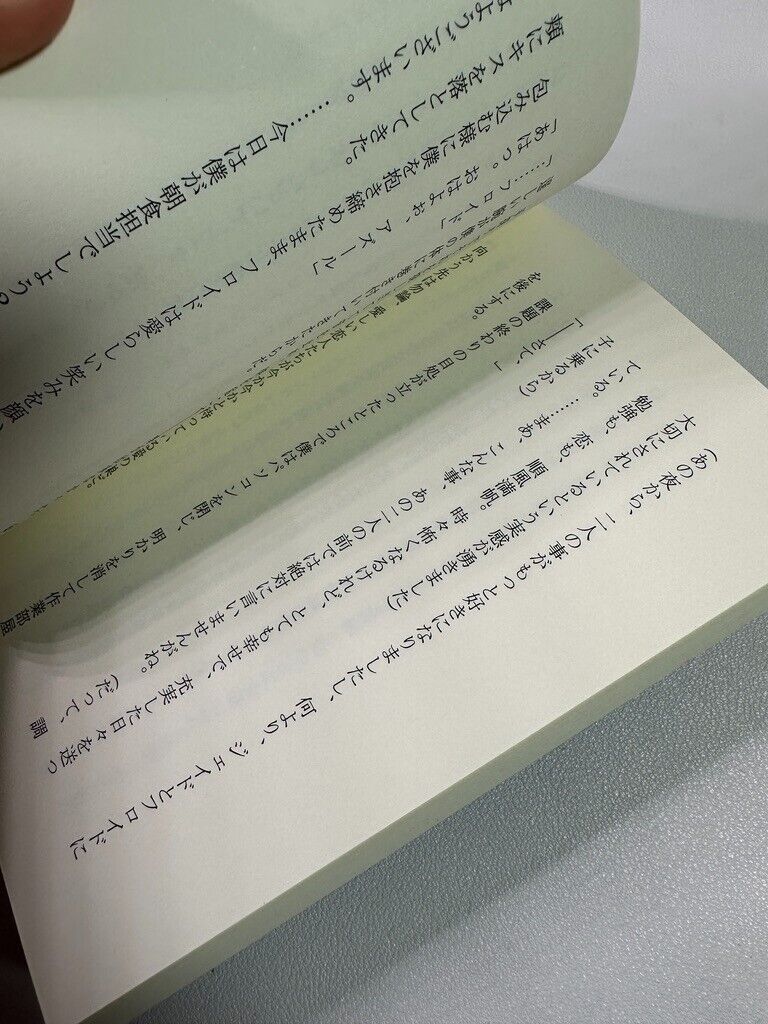 (あの夜から、二人の事がもっと好きになりましたし、何より、ジェイドとフロイドに
大切にされているという実感が湧きました)
勉強も、恋も、順風満帆。時々怖くなるけれど、とても幸せで、充実した日々を送っ
ている。
……まあ、こんな事、あの二人の前では絶対に言いませんがね。(だって、調
子に乗るから)
「――さて、」
課題の終わりの目処が立ったところで僕はパソコンを閉じ、明かりを消して作業部屋
を後にする。
向かう先は勿論、愛しい恋人たちが今か今かと待っている愛の巣だ。
逞しい腕が僕の体に巻き付いてきたからだ。
「……フロイド」
「あはっ。おはよぉ、アズール」
包み込む様に僕を抱き締めたまま、フロイドは愛らしい笑みを
頬にキスを落としてきた。
はようございます。……今日は僕が朝食担当でしょう。